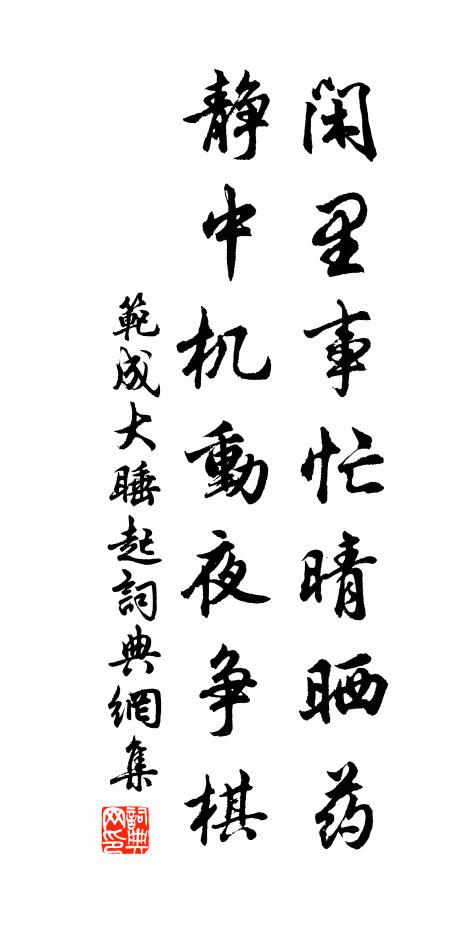 闲里事忙晴晒药
静中机動夜争棋
範成大睡起詞典網集
詞典网印